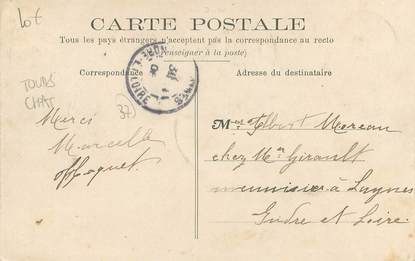 Lot
CARTE POSTALE
Tous les pays étrangers n'acceptent pas la correspondance au recto
(renseigner à la poste)
Correspondance
Adresse du destinataire
INDRE-ET-LOIRE
TOURS
CHAT
37)
Merci
Marcelle
Mme Albert Moreau
chez Mr Girault
menuisier à Luynes
Indre et Loire